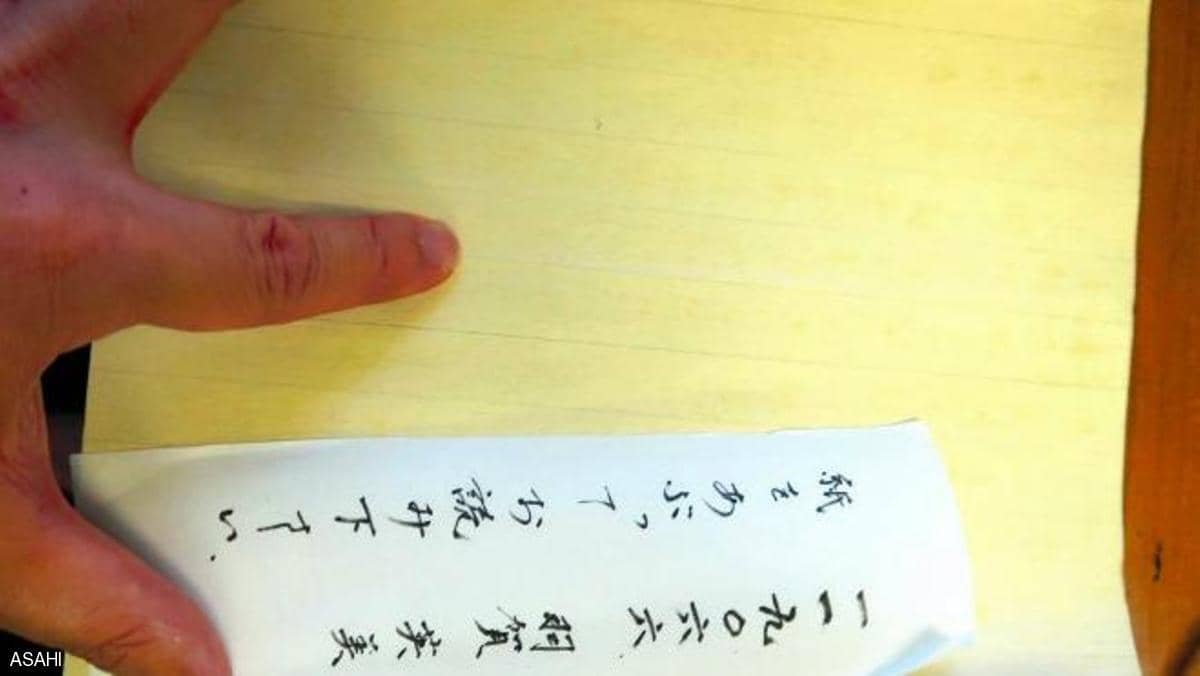 紙をあぶってお読み下さい.
一一九〇六六 羽賀英美
ASAHI